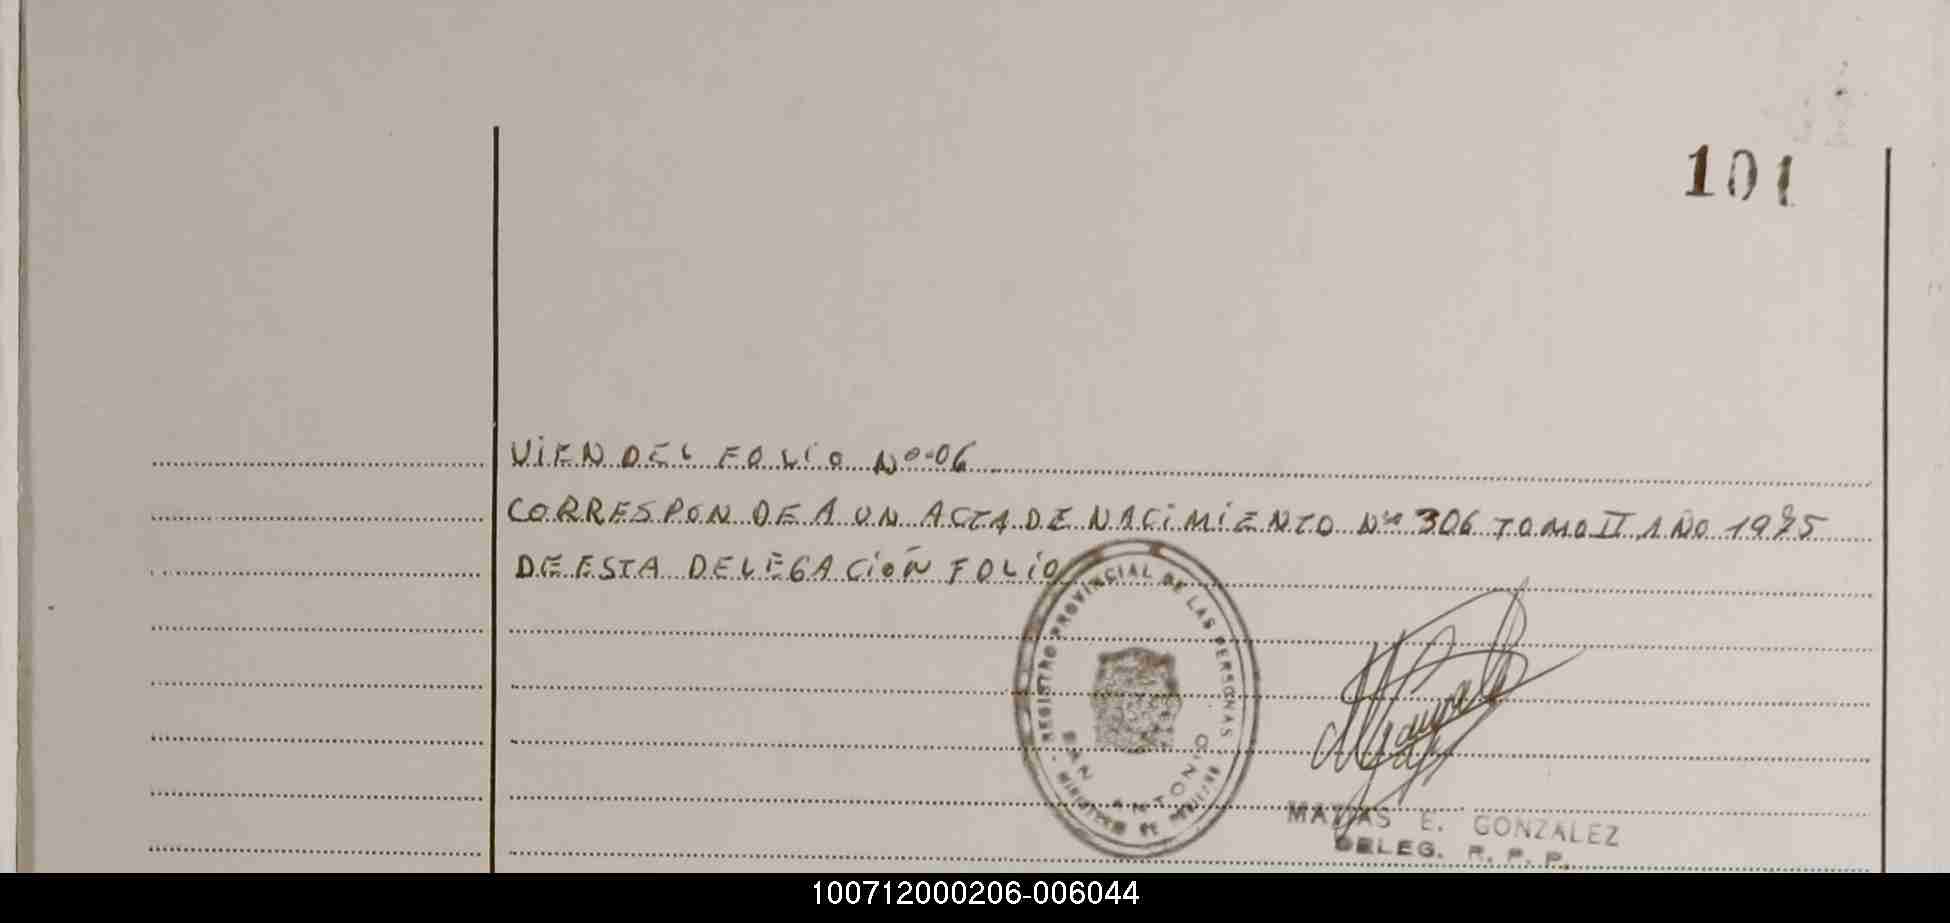 101
VIEN DEL FOLIO Nº 06
CORRESPONDE A UN ACTA DE NACIMIENTO Nº 306 TOMO II AÑO 1975
DE ESTA DELEGACIÓN FOLIO
REGISTRO PROVINCIAL DE LAS PERSONAS
SAN ANTONIO
MINISTERIO DE
MATIAS E. GONZALEZ
DELEG. R. P. P.
100712000206-006044